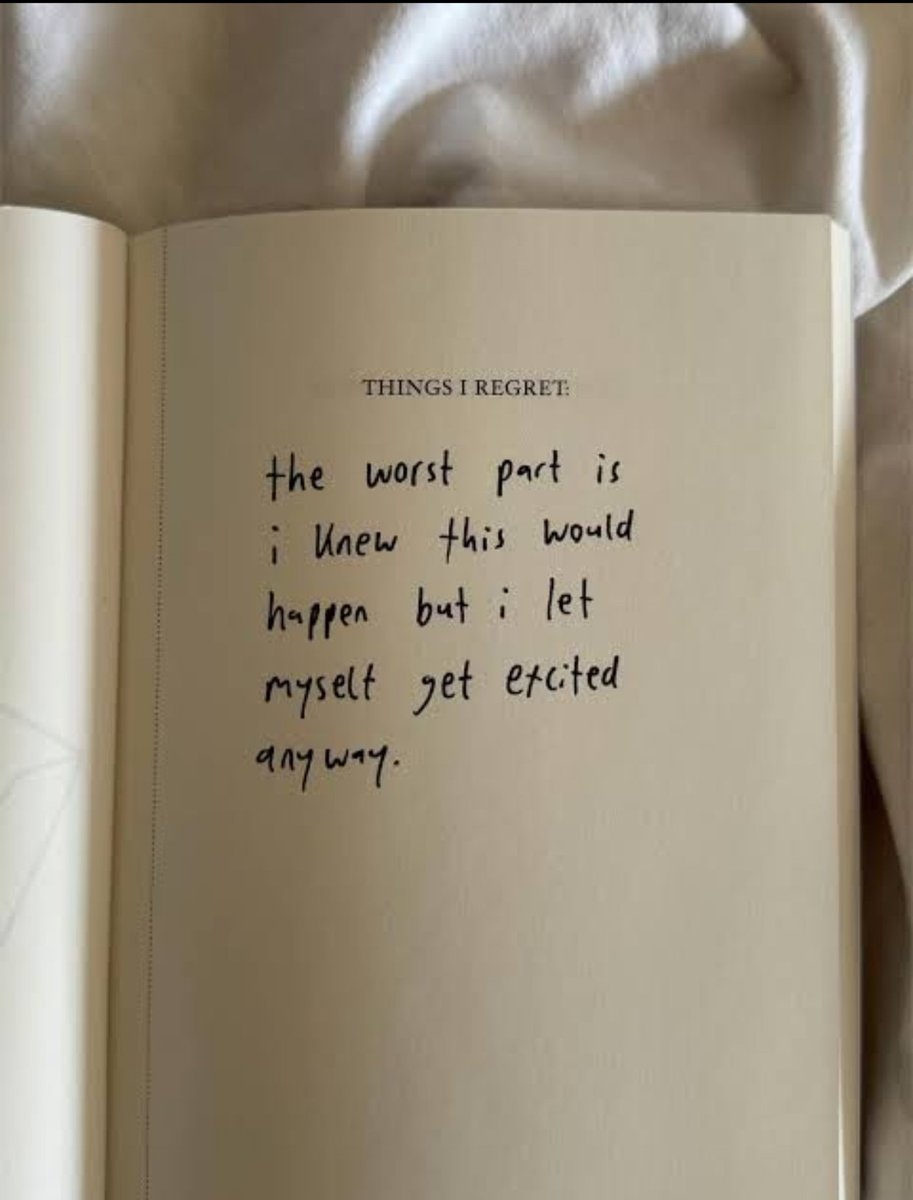 THINGS I REGRET:
the worst part is
i knew this would
happen but i let
myself get excited
anyway.